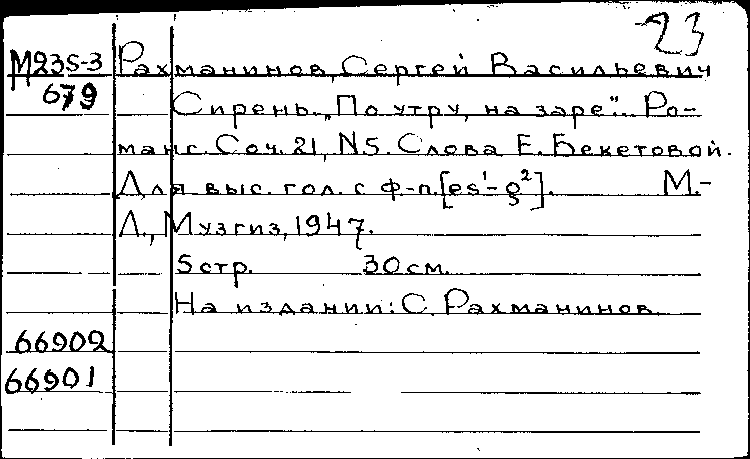 23
М235-3 Рахманинов, Сергей Васильевич
679 Сирень. „По утру, на заре“... Ро-
манс. Соч. 21, N5. Слова Е. Бекетовой.
Для выс. гол. с ф-п. [es¹-g²]. М.-
Л., Музгиз, 1947.
5 стр. 30 см.
На издании: С. Рахманинов
66902
66901